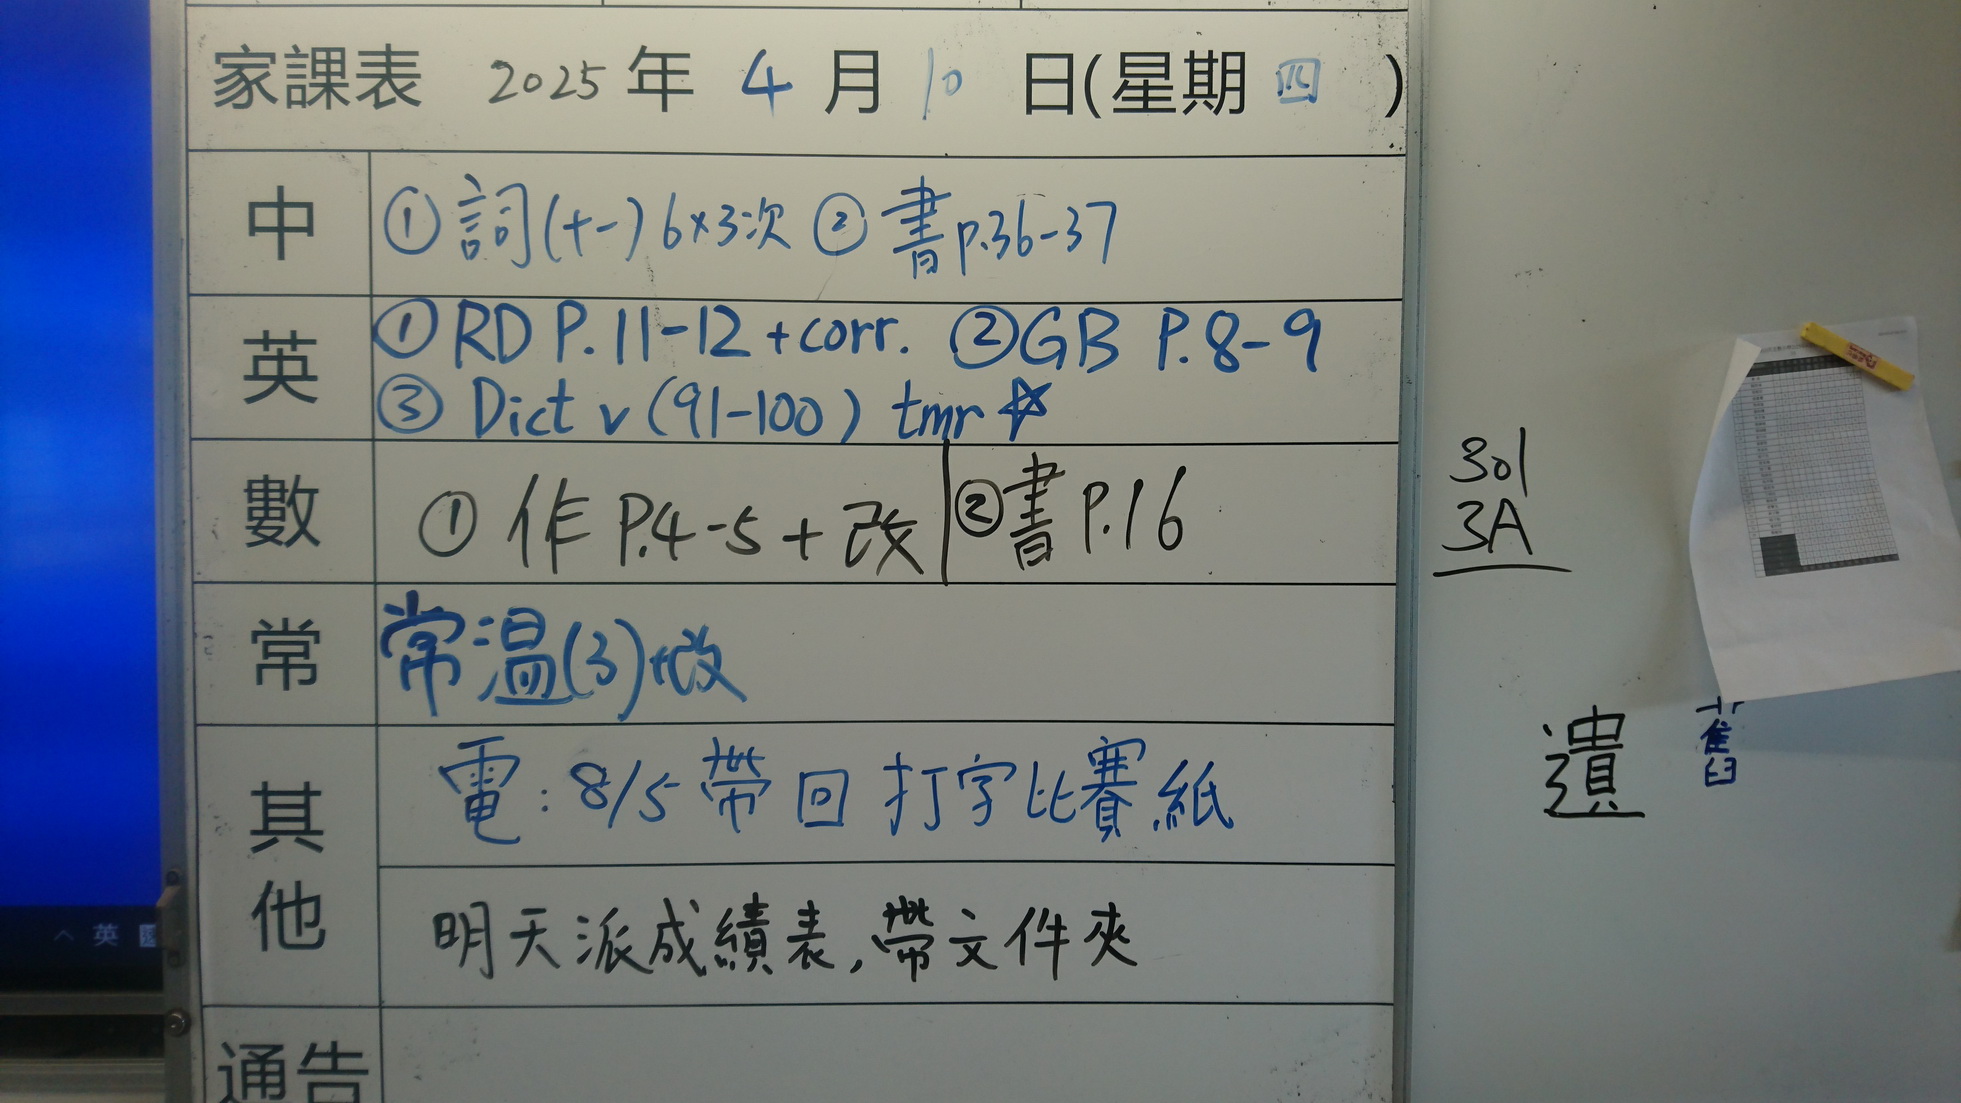 家課表 2025 年 4 月 10 日(星期 四 )
中 ① 詞(十一) 6×3次 ② 書 p.36-37
英 ① RD P.11-12 + corr. ② GB P.8-9
③ Dict v (91-100) tmr ☆
數 ① 作 P.4-5 + 改 ② 書 P.16
常 常温(3)+改
其他 電：8/5 帶回 打字比賽紙
明天派成績表，帶文件夾
通告
301
3A
遺
舊
英